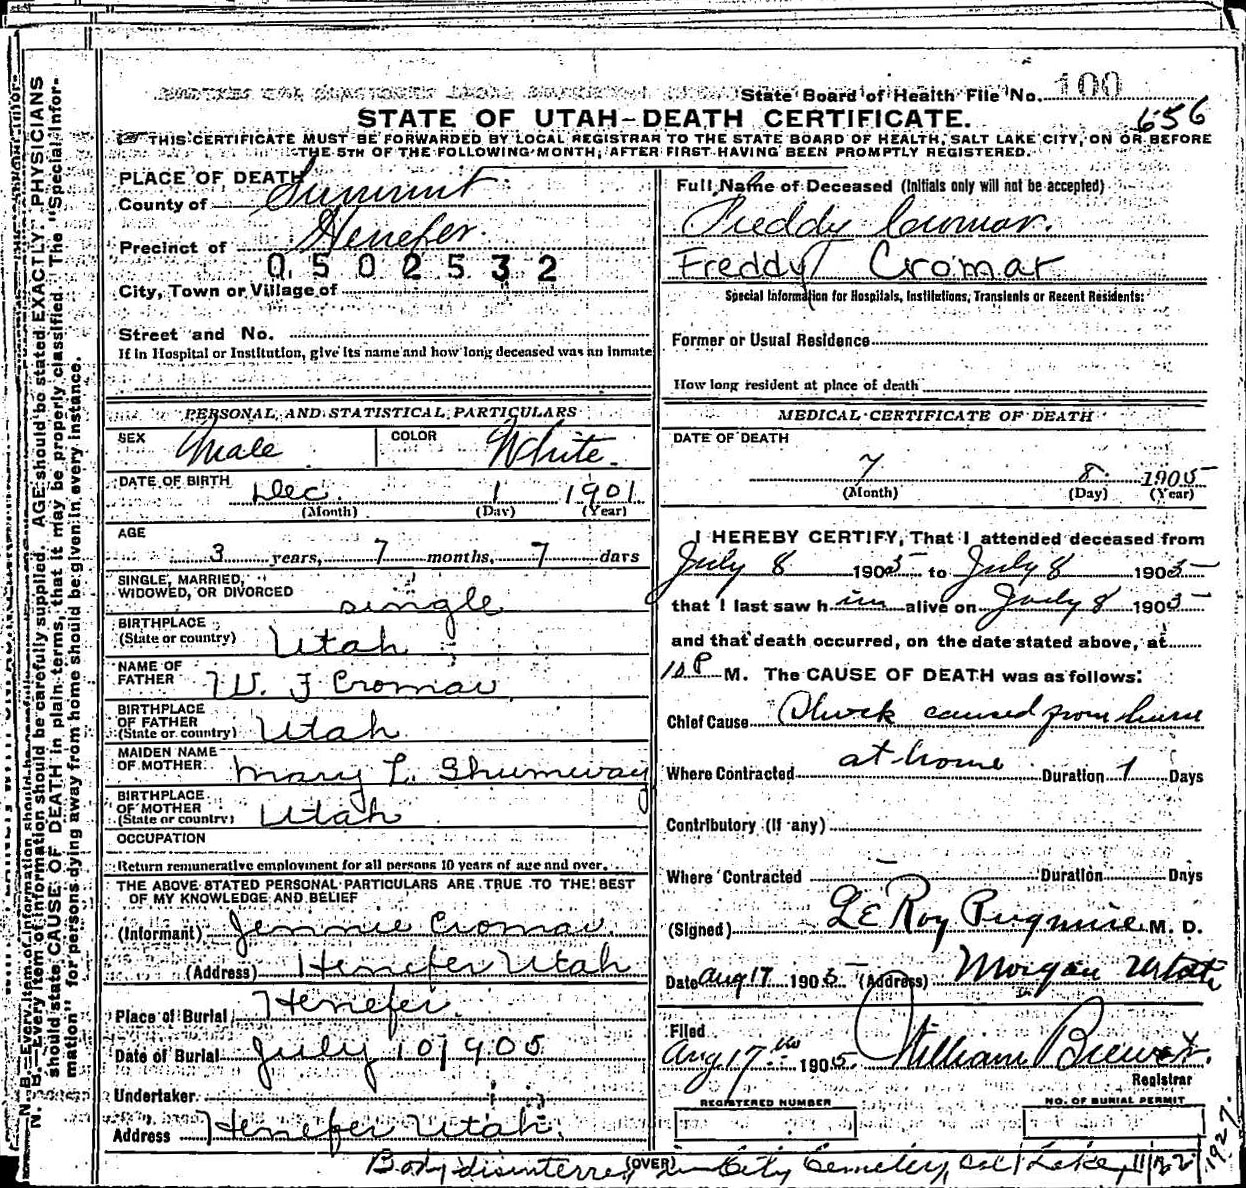 State Board of Health File No. 100
STATE OF UTAH–DEATH CERTIFICATE.
656
THIS CERTIFICATE MUST BE FORWARDED BY LOCAL REGISTRAR TO THE STATE BOARD OF HEALTH, SALT LAKE CITY, ON OR BEFORE
THE 5TH OF THE FOLLOWING MONTH, AFTER FIRST HAVING BEEN PROMPTLY REGISTERED.
PLACE OF DEATH
County of Summit
Precinct of Henefer.
0502532
City, Town or Village of
Street and No.
If in Hospital or Institution, give its name and how long deceased was an inmate
PERSONAL AND STATISTICAL PARTICULARS
SEX Male COLOR White.
DATE OF BIRTH Dec. 1 1901
(Month) (Day) (Year)
AGE
3 years, 7 months, 7 days
SINGLE, MARRIED,
WIDOWED, OR DIVORCED single
BIRTHPLACE
(State or country) Utah
NAME OF
FATHER W. F Cromar
BIRTHPLACE
OF FATHER
(State or country) Utah
MAIDEN NAME
OF MOTHER Mary L. Shumway
BIRTHPLACE
OF MOTHER
(State or country) Utah
OCCUPATION
Return remunerative employment for all persons 10 years of age and over.
THE ABOVE STATED PERSONAL PARTICULARS ARE TRUE TO THE BEST
OF MY KNOWLEDGE AND BELIEF
(Informant) Jennie Cromar.
(Address) Henefer Utah
Place of Burial Henefer.
Date of Burial July 10 1905
Undertaker
Address Henefer Utah.
Full Name of Deceased (Initials only will not be accepted)
Freddy Cromar.
Freddy Cromar
Special Information for Hospitals, Institutions, Transients or Recent Residents:
Former or Usual Residence
How long resident at place of death
MEDICAL CERTIFICATE OF DEATH
DATE OF DEATH
7 8 1905
(Month) (Day) (Year)
I HEREBY CERTIFY, That I attended deceased from
July 8 1905 to July 8 1905
that I last saw him alive on July 8 1905
and that death occurred, on the date stated above, at
10 P M. The CAUSE OF DEATH was as follows:
Chief Cause Shock caused from burn
Where Contracted at home Duration 1 Days
Contributory (If any)
Where Contracted Duration Days
(Signed) LeRoy Pugmire M. D.
Date Aug 17 1905 (Address) Morgan Utah
Filed
Aug 17 1905 William Brewer.
Registrar
REGISTERED NUMBER
NO. OF BURIAL PERMIT
(OVER)
Body disinterred in City Cemetery, Salt Lake, 1927.
N. B.—Every item of information should be carefully supplied. AGE should be stated EXACTLY. PHYSICIANS
should state CAUSE OF DEATH in plain terms, that it may be properly classified. The "Special Infor-
mation" for persons dying away from home should be given in every instance.